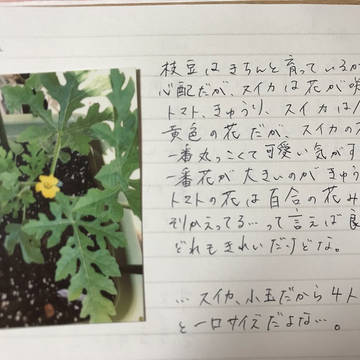 枝豆はきちんと育っているか
心配だが、スイカは花が咲
トマト、きゅうり、スイカは
黄色の花だが、スイカの
一番丸っこくて可愛い気がす
一番花が大きいのがきゅう
トマトの花は百合の花み
そりかえってる…って言えば良
どれもきれいだけどな。
…スイカ、小玉だから4人
と一口サイズだよな…。